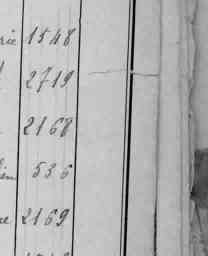 rie 1548
2719
2168
ien 536
ne 2169